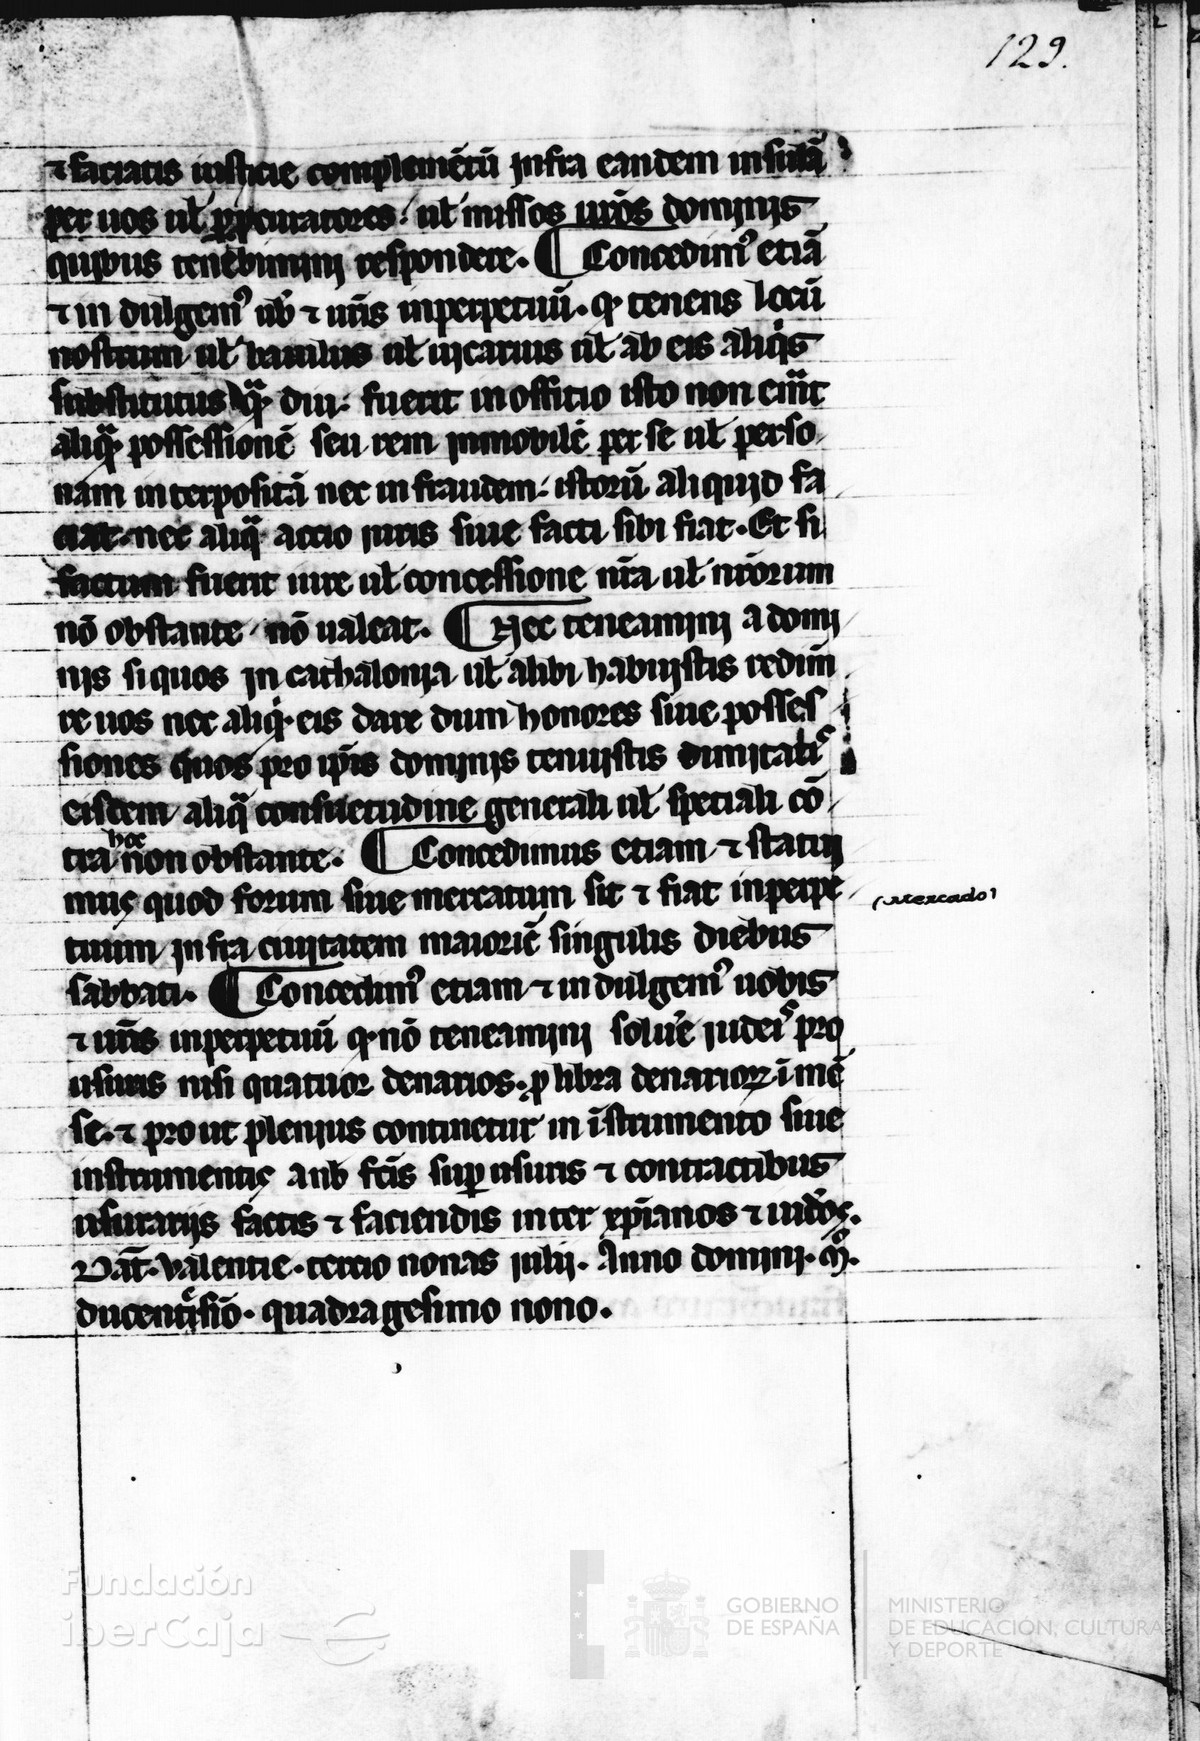 129.
⁊ faciatis iusticie complemētū jnfra eandem insulā
per uos ul̄ ꝓcuratores ul̄ missos ur̄os dominis
quibus tenebimini respondere. ¶ Concedimꝰ etiā
⁊ in dulgemꝰ uob̄ ⁊ ur̄is inperpetuū. qͥ tenens locū
nostrum ul̄ baiulus ul̄ uicarius ul̄ ab eis aliqͥs
substitutus qͣ diu fuerit in offitio isto non emāt
aliqͣ possessionē seu rem jnmobilē per se ul̄ perso
nam interpositā nec in fraudem istorū aliquid fa
ciat. nec aliqͣ accio juris siue facti sibi fiat. Et si
factum fuerit iure ul̄ concessione nr̄a ul̄ nr̄orum
nō obstante nō ualeat. ¶ Nec teneamini a domi
nis si quos jn cathalonia ul̄ alibi habuistis redim̄
re uos nec aliqͥ eis dare dum honores siue posses
siones quos pro ip̄is dominis tenuistis dimitatꝭ
eisdem aliqͣ consuetudine generali ul̄ speciali cō
tra hoc non obstante. ¶ Concedimus etiam ⁊ statui
mus quod forum siue mercatum sit ⁊ fiat inperpe
(Mercado)
tuum jnfra ciuitatem maioric̄ singulis diebus
sabbati. ¶ Concedimꝰ etiam ⁊ in dulgemꝰ uobis
⁊ ur̄is inperpetuū qͥ nō teneamini soluͤe judeiꝰ pro
usuris nisi quatuor denarios. ꝑ libra denarioꝝ ī mē
se. ⁊ prout plenius continetur in īstrumento siue
instrumentis a nob̄ fc̄is suꝑ usuris ⁊ contractibus
usurariis factis ⁊ faciendis inter xp̄ianos ⁊ iudeos.
Dat̄. Valentie. tercio nonas iulii. Anno domini. Mͦ.
ducentͤsiō. quadragesimo nono.
Fundación
iberCaja
GOBIERNO
DE ESPAÑA
MINISTERIO
DE EDUCACIÓN, CULTURA
Y DEPORTE